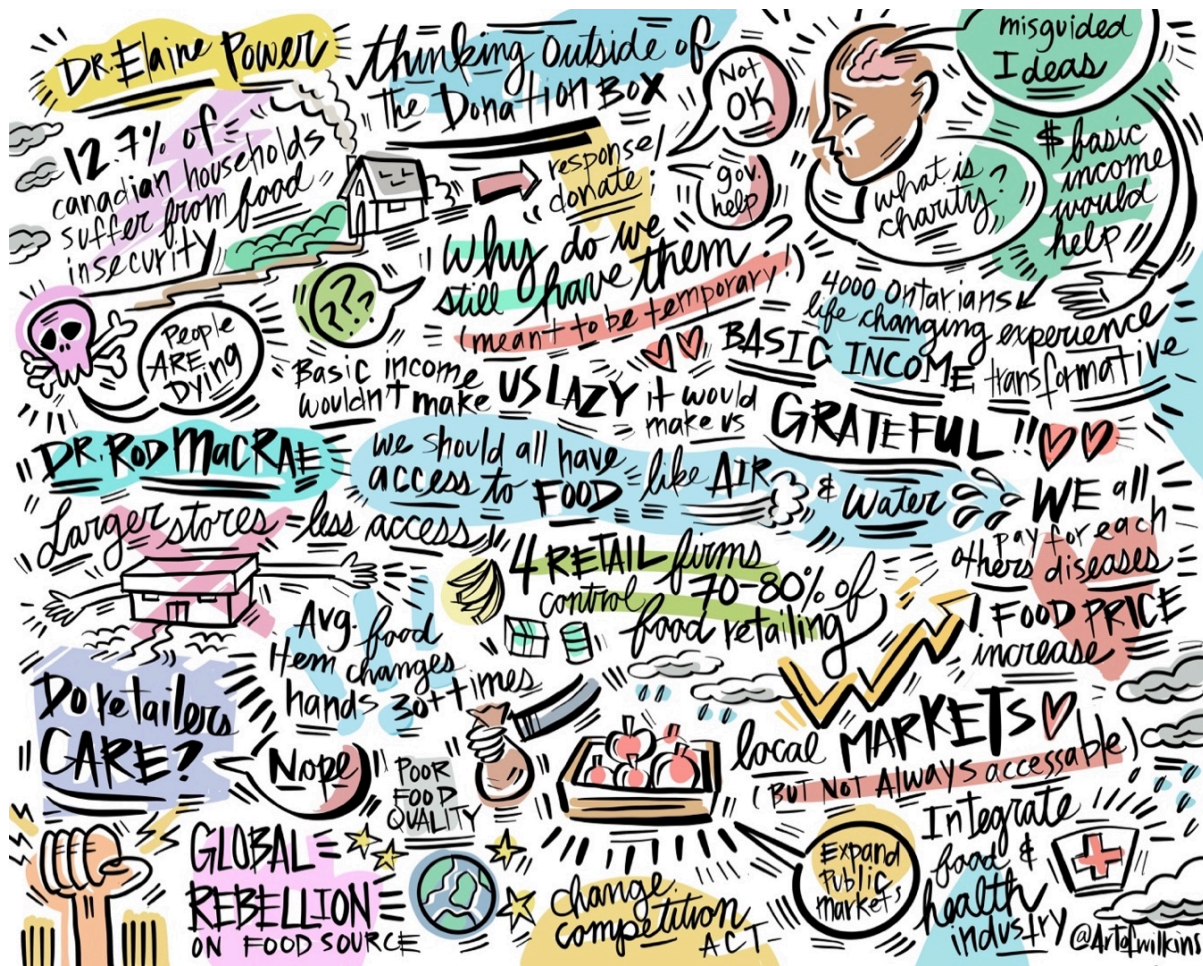 Dr. Elaine Power
thinking outside of
The Donation Box
Not
OK
misguided
Ideas
12.7% of
canadian households
suffer from food
insecurity
response/
donate
gov.
help
what is
charity?
$ basic
income
would
help
???
Why do we
still have them?
(meant to be temporary)
4000 Ontarians
life changing experience
BASIC INCOME transformative
People
ARE
Dying
Basic income
wouldn't make US LAZY it would
make us GRATEFUL!!
DR. ROD MACRAE
we should all have
access to FOOD like AIR
& Water
WE all
pay for each
others diseases
Larger stores = less access
4 RETAIL firms
control 70-80% of
food retailing
FOOD PRICE
increase
Avg. food
item changes
hands 30+ times
Do retailers
CARE?
Nope
POOR
FOOD
QUALITY
local MARKETS
(BUT NOT Always accessable)
GLOBAL
REBELLION
ON FOOD SOURCE
change
competition
ACT
Expand
Public
markets
Integrate
food &
health
industry
@Artofwilkins